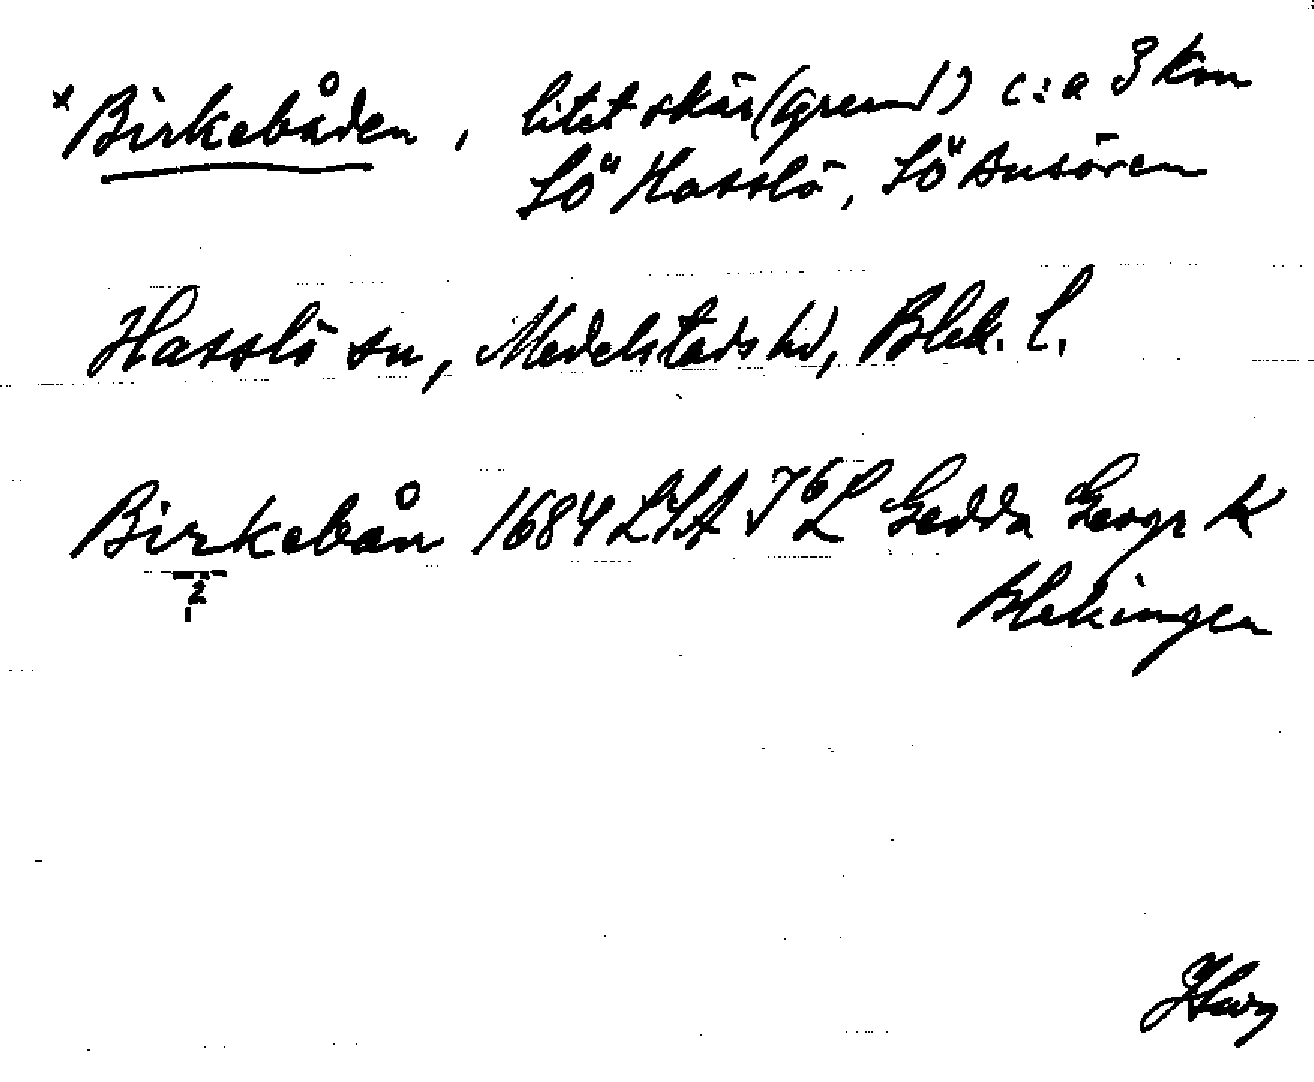 x Birkebåden, litet skär (grund?) c:a 3 km
SÖ Hasslö, SÖ Ausören
Hasslö sn, Medelstads hd, Blek. l.
Birkebån 1684 LSA Gedda Geogr K
2
Blekingen